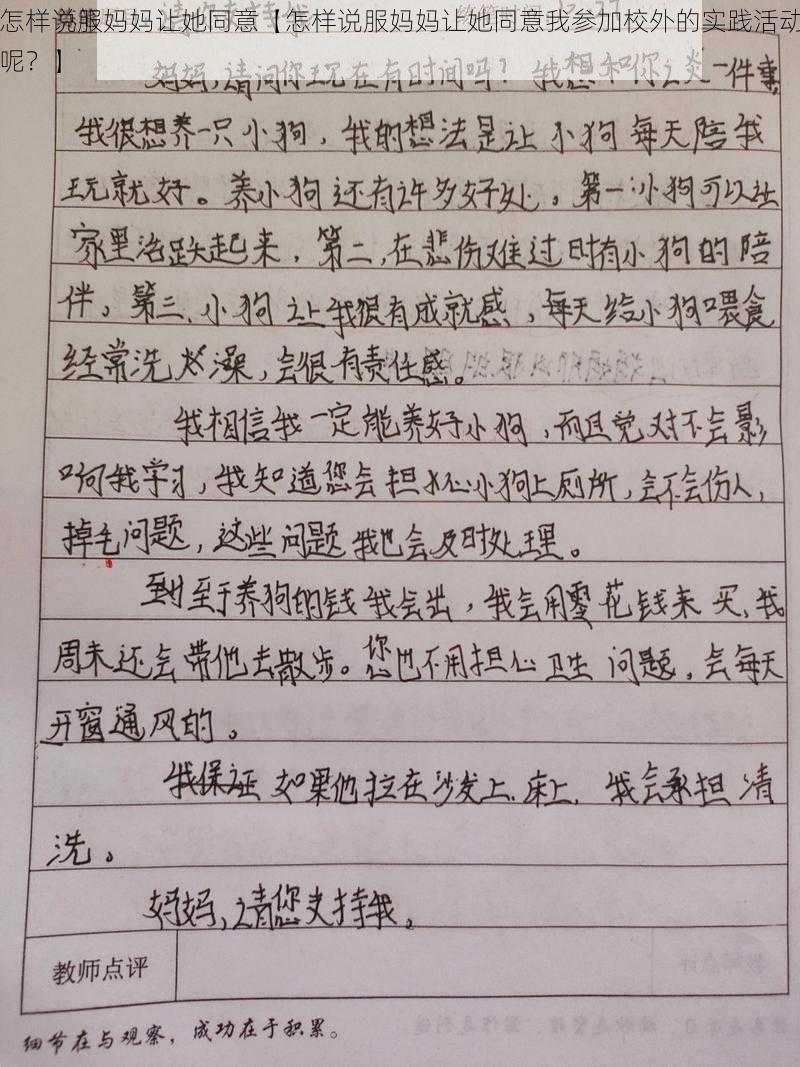 怎样说服妈妈让她同意【怎样说服妈妈让她同意我参加校外的实践活动
呢？】
请你支持我
妈妈,请问你现在有时间吗？我想和你谈一件事,
我很想养一只小狗，我的想法是让小狗每天陪我
玩就好。养小狗还有许多好处，第一:小狗可以让
家里活跃起来，第二,在悲伤难过时有小狗的陪
伴。第三.小狗让我很有成就感，每天给小狗喂食
经常洗澡，会很有责任感。
我相信我一定能养好小狗，而且绝对不会影
响我学习，我知道您会担心小狗上厕所，会不会伤人，
掉毛问题，这些问题我也会及时处理。
至于养狗的钱我会出，我会用零花钱来买,我
周末还会带他去散步。您也不用担心卫生问题，会每天
开窗通风的。
我保证如果他拉在沙发上.床上.我会承担清
洗。
妈妈,请您支持我。
教师点评
细节在与观察，成功在于积累。